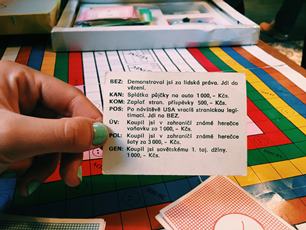 BEZ: Demonstroval jsi za lidská práva. Jdi do
vězení.
KAN: Splátka půjčky na auto 1 000,- Kčs.
KOM: Zaplať stran. příspěvky 500,- Kčs.
POS: Po návštěvě USA vracíš stranickou legi-
timaci. Jdi na BEZ.
ÚV: Koupil jsi v zahraničí známé herečce
voňavku za 1 000,- Kčs.
POL: Koupil jsi v zahraničí známé herečce
šaty za 3 000,- Kčs.
GEN: Koupil jsi sovětskému 1. taj. džíny.
1 000,- Kčs.